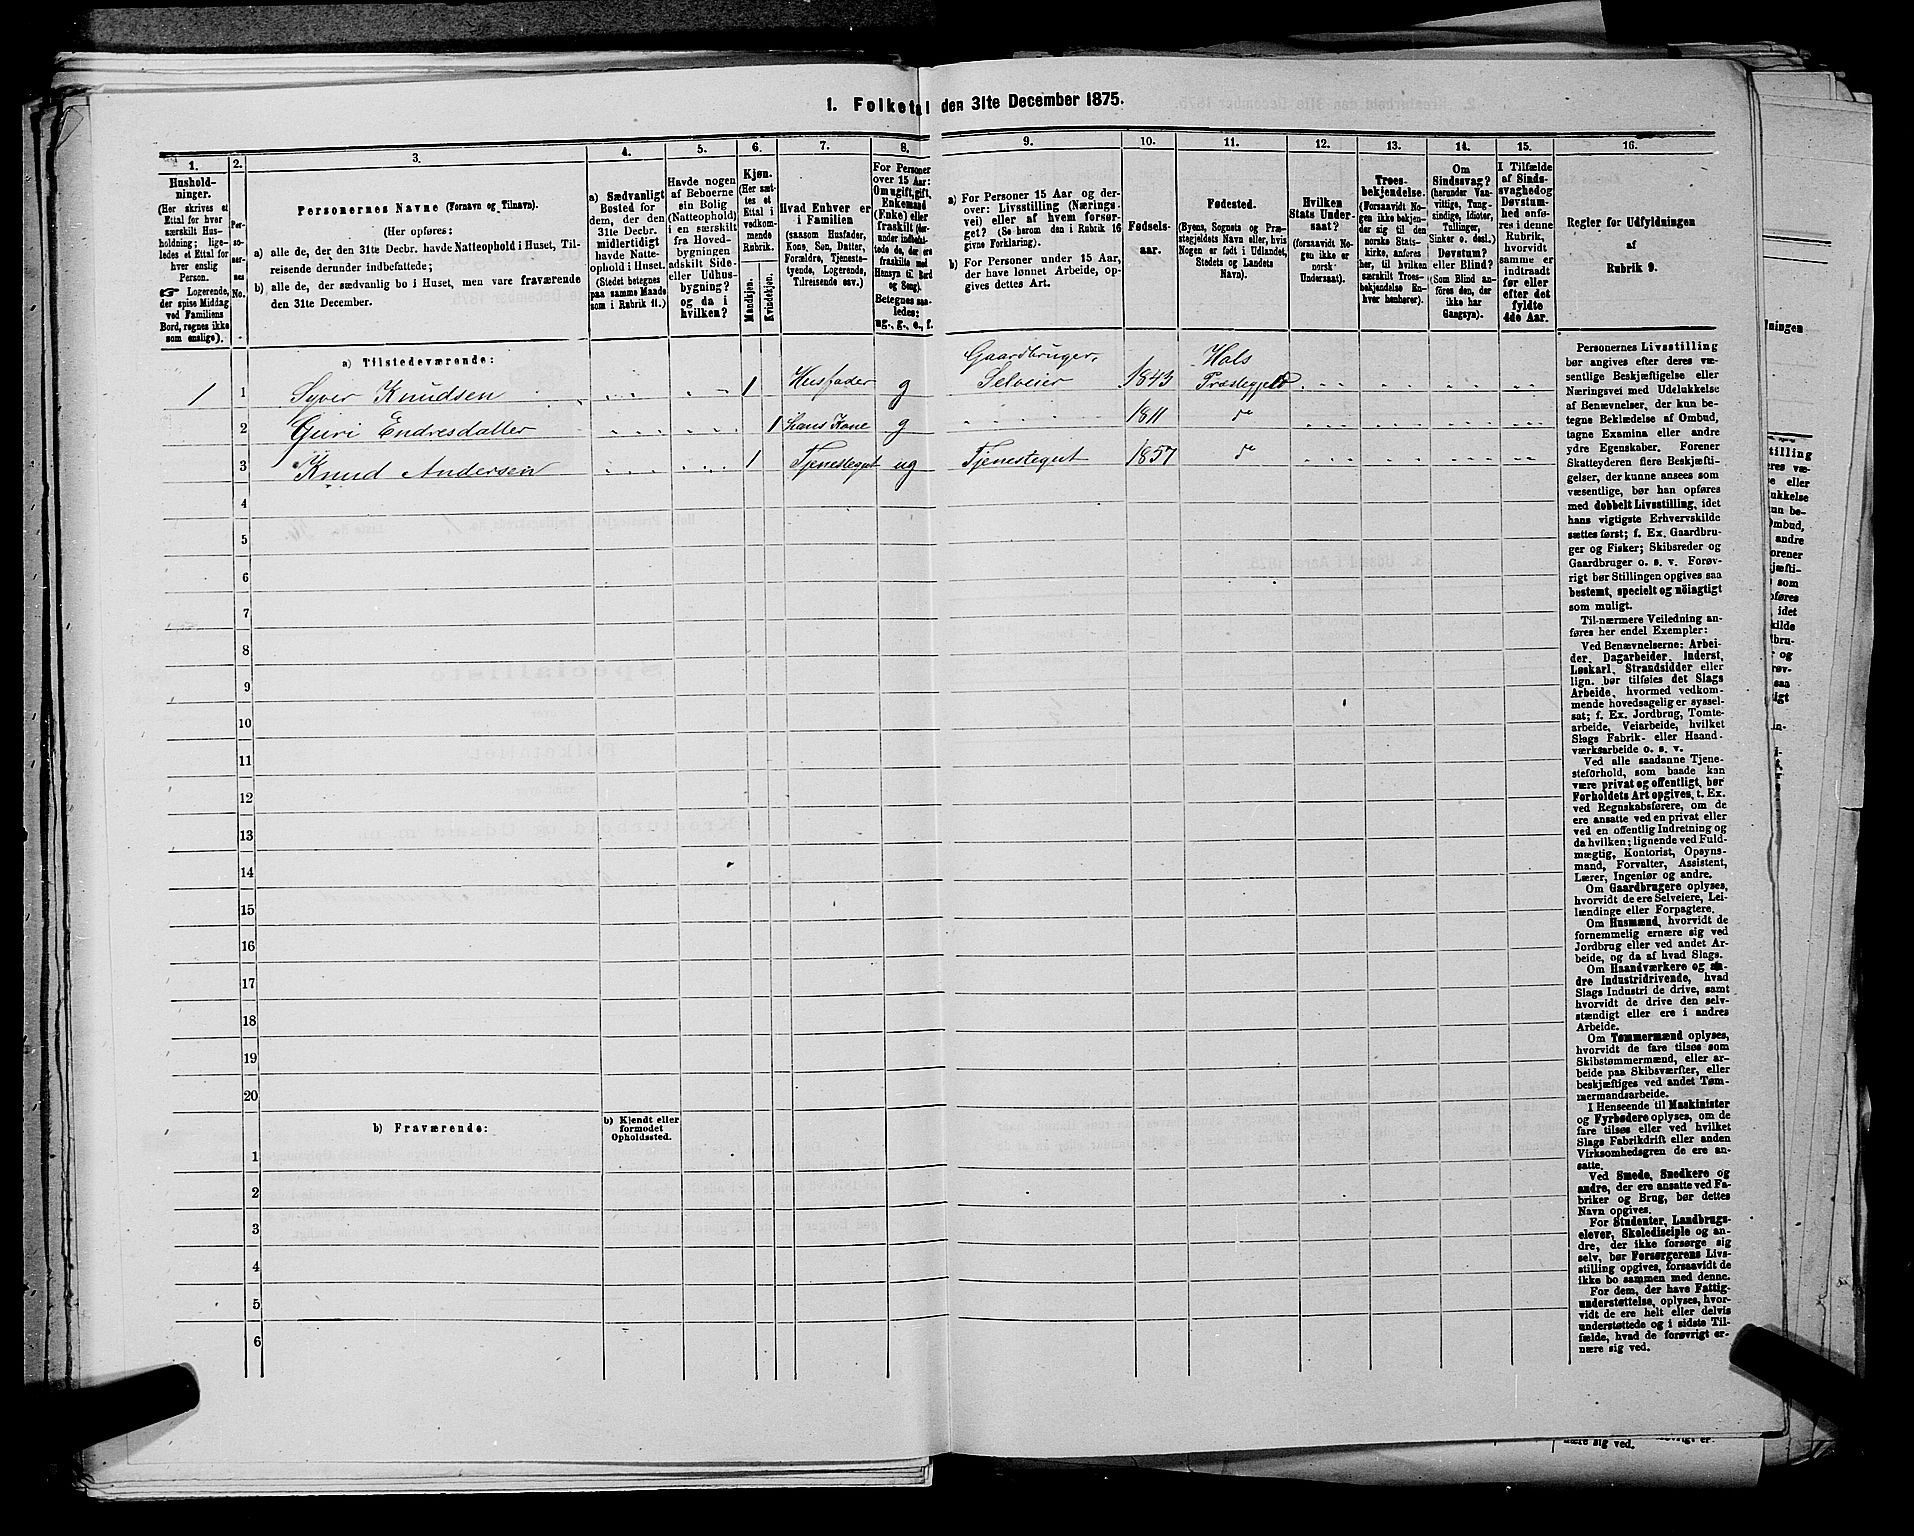 1. Folketal den 31te December 1875.
1. 2. 3. 4. 5. 6. 7. 8. 9. 10. 11. 12. 13. 14. 15. 16.
Hushold-
ninger.
(Her skrives et
Ettal for hver
særskilt Hus-
holdning; lige-
ledes et Ettal for
hver enslig
Person.
☞ Logerende,
der spise Middag
ved Familiens
Bord, regnes ikke
som enslige).
Per-
so-
ner-
nes
No.
Personernes Navne (Fornavn og Tilnavn).
(Her opføres:
a) alle de, der den 31te Decbr. havde Natteophold i Huset, Til-
reisende derunder indbefattede;
b) alle de, der sædvanlig bo i Huset, men vare fraværende
den 31te December.
a) Sædvanligt
Bosted for
dem, der den
31te Decbr.
midlertidigt
havde Natte-
ophold i Huset.
(Stedet betegnes
paa samme Maade
som i Rubrik 11.)
Havde nogen
af Beboerne
sin Bolig
(Natteophold)
i en særskilt
fra Hoved-
bygningen
adskilt Side-
eller Udhus-
bygning?
og da i
hvilken?
Kjøn.
(Her sæt-
tes et
Ettal i
vedkom-
mende
Rubrik.
Mandkjøn.
Kvindekjøn.
Hvad Enhver er
i Familien
(saasom Husfader,
Kone, Søn, Datter,
Forældre, Tjeneste-
tyende, Logerende,
Tilreisende osv.)
For Personer
over 15 Aar:
Om ugift, gift,
Enkemand
(Enke) eller
fraskilt (der-
under indbefat-
tede de, der ere
fraskilte med
Hensyn til Bord
og Seng).
Betegnes saa-
ledes:
ug., g., e., f.
a) For Personer 15 Aar og der-
over: Livsstilling (Nærings-
vei) eller af hvem forsør-
get? (Se herom den i Rubrik 16
givne Forklaring).
b) For Personer under 15 Aar,
der have lønnet Arbeide, op-
gives dettes Art.
Fødsels-
aar.
Fødested.
(Byens, Sognets og Præ-
stegjeldets Navn eller, hvis
Nogen er født i Udlandet,
Stedets og Landets
Navn).
Hvilken
Stats Under-
saat?
(forsaavidt No-
gen ikke er
norsk
Undersaat).
Troes-
bekjendelse.
(Forsaavidt No-
gen ikke bekjen-
der sig til den
norske Stats-
kirke, anføres
her, til hvilken
særskilt Troes-
bekjendelse En-
hver henhører).
Om
Sindssvag?
(herunder Van-
vittige, Tung-
sindige, Idioter,
Tullinger,
Sinker o. desl.)
Døvstum?
eller Blind?
(Som Blind an-
føres den, der
ikke har
Gangsyn).
I Tilfælde
af Sinds-
svaghed og
Døvstum-
hed anfø-
res i denne
Rubrik,
hvorvidt
samme er
indtraadt
før eller
efter det
fyldte
4de Aar.
Regler for Udfyldningen
af
Rubrik 9.
a) Tilstedeværende:
1 1 Syver Knudsen 1 Husfader g Gaardbruger, Selveier 1843 Hols Præstegjeld
2 Guri Endresdatter 1 hans Kone g 1811 do
3 Knud Andersen 1 Tjenestegut ug Tjenestegut 1857 do
4
5
6
7
8
9
10
11
12
13
14
15
16
17
18
19
20
b) Fraværende:
b) Kjendt eller
formodet
Opholdssted.
1
2
3
4
5
6
Personernes Livsstilling
bør angives efter deres væ-
sentlige Beskjæftigelse eller
Næringsvei med Udelukkelse
af Benævnelser, der kun be-
tegne Beklædelse af Ombud,
tagne Examina eller andre
ydre Egenskaber. Forener
Skatteyderen flere Beskjæfti-
gelser, der kunne ansees som
væsentlige, bør han opføres
med dobbelt Livsstilling, idet
hans vigtigste Erhvervskilde
sættes først; f. Ex. Gaardbru-
ger og Fisker; Skibsreder og
Gaardbruger o. s. v. Forøv-
rigt bør Stillingen opgives saa
bestemt, specielt og nöiagtigt
som muligt.
Til nærmere Veiledning an-
føres her endel Exempler:
Ved Benævnelserne: Arbei-
der, Dagarbeider, Inderst,
Løskarl, Strandsidder eller
lign. bør tilføies det Slags
Arbeide, hvormed vedkom-
mende hovedsagelig er syssel-
sat; f. Ex. Jordbrug, Tomte-
arbeide, Veiarbeide, hvilket
Slags Fabrik- eller Haand-
værksarbeide o. s. v.
Ved alle saadanne Tjene-
steforhold, som baade kan
være privat og offentligt, bør
Forholdets Art opgives, t. Ex.
ved Regnskabsførere, om de
ere ansatte ved en privat eller
ved en offentlig Indretning og
da hvilken; lignende ved Fuld-
mægtig, Kontorist, Opsyns-
mand, Forvalter, Assistent,
Lærer, Ingeniør og andre.
Om Gaardbrugere oplyses,
hvorvidt de ere Selveiere, Lei-
lændinge eller Forpagtere.
Om Husmænd, hvorvidt de
fornemmelig ernære sig ved
Jordbrug eller ved andet Ar-
beide, og da af hvad Slags.
Om Haandværkere og an-
dre Industridrivende, hvad
Slags Industri de drive, samt
hvorvidt de drive den selv-
stændigt eller ere i andres
Arbeide.
Om Tømmermænd oplyses,
hvorvidt de fare tilsøs som
Skibstømmermænd, eller ar-
beide paa Skibsværfter, eller
beskjæftiges ved andet Tøm-
mermandsarbeide.
I Henseende til Maskinister
og Fyrbødere oplyses, om de
fare tilsøs eller ved hvilket
Slags Fabrikdrift eller anden
Virksomhedsgren de ere an-
satte.
Ved Smede, Snedkere og
andre, der ere ansatte ved Fa-
briker og Brug, bør dettes
Navn opgives.
For Studenter, Landbrugs-
elever, Skoledisciple og an-
dre, der ikke forsørge sig
selv, bør Forsørgerens Livs-
stilling opgives, forsaavidt de
ikke bo sammen med denne.
For dem, der have Fattig-
understøttelse, oplyses, hvor-
vidt de ere helt eller delvis
understøttede og i sidste Til-
fælde, hvad de forøvrigt er-
nære sig ved.